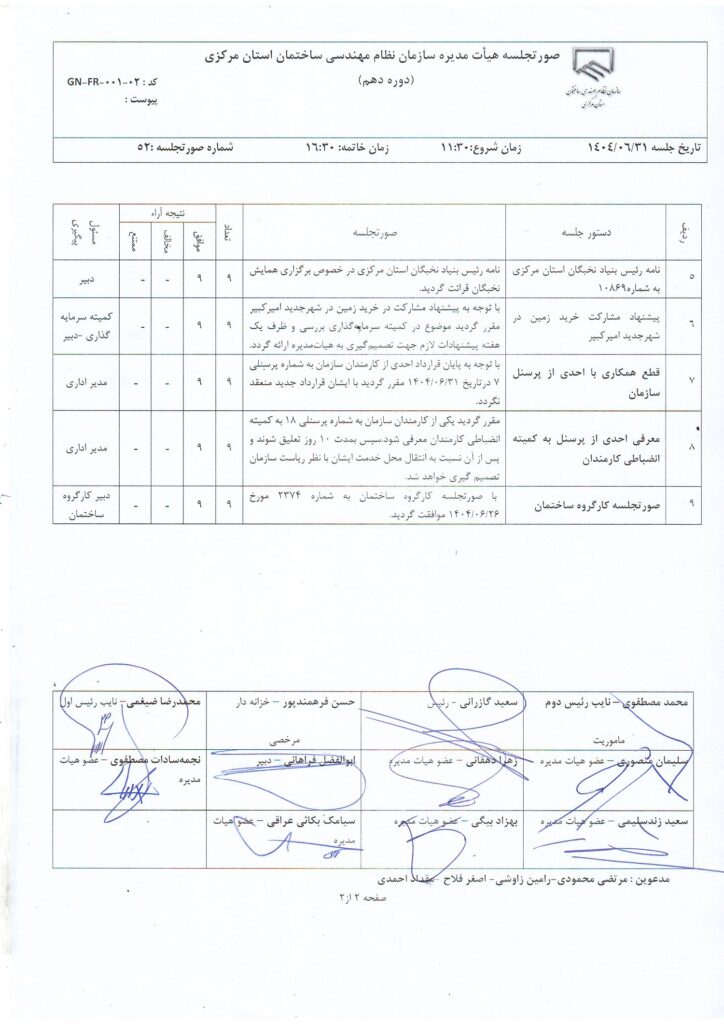 صورتجلسه هیأت مدیره سازمان نظام مهندسی ساختمان استان مرکزی
(دوره دهم)
کد : GN-FR-۰۰۱-۰۲
پیوست :
سازمان نظام مهندسی ساختمان
استان مرکزی
تاریخ جلسه ۱۴۰۴/۰۶/۳۱ زمان شروع:۱۱:۳۰ زمان خاتمه: ۱۶:۳۰ شماره صورتجلسه :۵۲
ردیف دستور جلسه صورتجلسه تعداد نتیجه آراء مسئول پیگیری
موافق مخالف ممتنع
۵ نامه رئیس بنیاد نخبگان استان مرکزی نامه رئیس بنیاد نخبگان استان مرکزی در خصوص برگزاری همایش ۹ ۹ - - دبیر
به شماره۱۰۸۶۹ نخبگان قرائت گردید.
۶ پیشنهاد مشارکت خرید زمین در با توجه به پیشنهاد مشارکت در خرید زمین در شهرجدید امیرکبیر ۹ ۹ - - کمیته سرمایه
شهرجدید امیرکبیر مقرر گردید موضوع در کمیته سرمایه‌گذاری بررسی و ظرف یک گذاری -دبیر
هفته پیشنهادات لازم جهت تصمیم‌گیری به هیات‌مدیره ارائه گردد.
۷ قطع همکاری با احدی از پرسنل با توجه به پایان قرارداد احدی از کارمندان سازمان به شماره پرسنلی ۹ ۹ - - مدیر اداری
سازمان ۷ درتاریخ ۱۴۰۴/۰۶/۳۱ مقرر گردید با ایشان قرارداد جدید منعقد
نگردد.
۸ معرفی احدی از پرسنل به کمیته مقرر گردید یکی از کارمندان سازمان به شماره پرسنلی ۱۸ به کمیته ۹ ۹ - - مدیر اداری
انضباطی کارمندان انضباطی کارمندان معرفی شود.سپس بمدت ۱۰ روز تعلیق شوند و
پس از آن نسبت به انتقال محل خدمت ایشان با نظر ریاست سازمان
تصمیم گیری خواهد شد.
۹ صورتجلسه کارگروه ساختمان با صورتجلسه کارگروه ساختمان به شماره ۲۳۷۴ مورخ ۹ ۹ - - دبیر کارگروه
۱۴۰۴/۰۶/۲۶ موافقت گردید. ساختمان
محمد مصطفوی – نایب رئیس دوم سعید گازرانی - رئیس حسن فرهمندپور – خزانه دار محمدرضا ضیغمی – نایب رئیس اول
ماموریت مرخصی
سلیمان منصوری – عضو هیات مدیره زهرا دهقانی – عضو هیات مدیره ابوالفضل فراهانی – دبیر نجمه‌سادات مصطفوی – عضو هیات
مدیره
سعید زندسلیمی – عضو هیات مدیره بهزاد بیگی – عضو هیات مدیره سیامک بکائی عراقی – عضو هیات
مدیره
مدعوین : مرتضی محمودی-رامین زاوشی- اصغر فلاح -مقداد احمدی
صفحه ۲ از۲